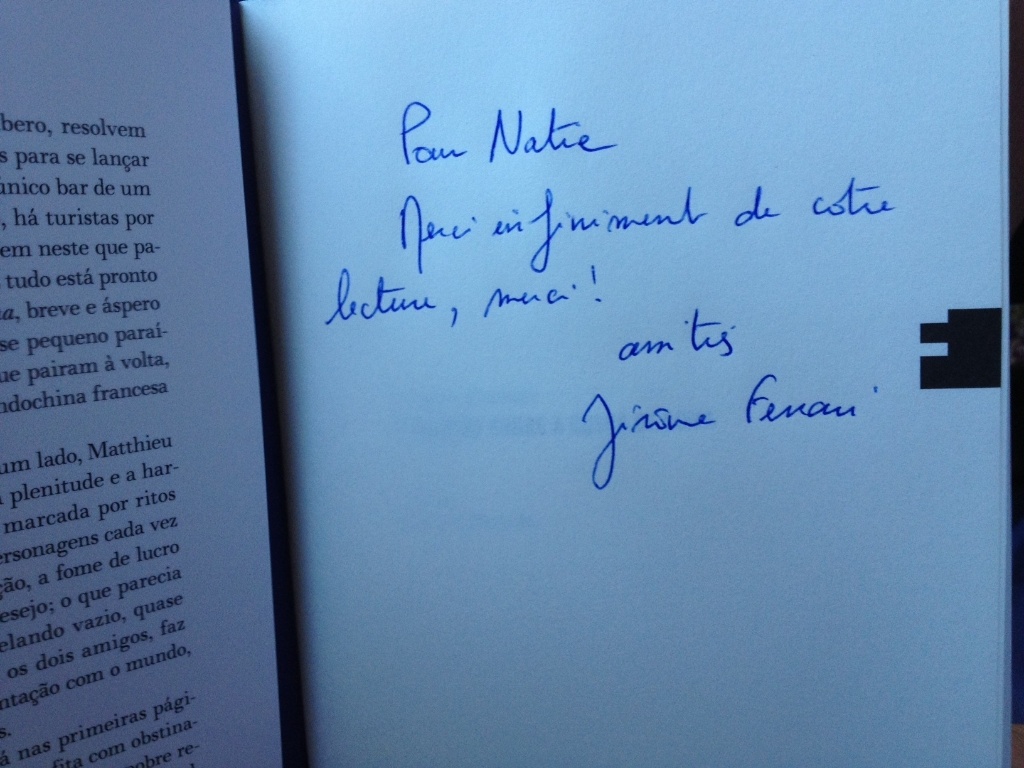 bero, resolvem
s para se lançar
único bar de um
, há turistas por
em neste que pa-
tudo está pronto
a, breve e áspero
se pequeno paraí-
ue pairam à volta,
ndochina francesa
um lado, Matthieu
a plenitude e a har-
marcada por ritos
ersonagens cada vez
ção, a fome de lucro
esejo; o que parecia
elando vazio, quase
os dois amigos, faz
ntação com o mundo,
s.
á nas primeiras pági-
fita com obstina-
nobre re-
Pour Natie
Merci infiniment de cotre
lecture, merci!
amitiés
Jérôme Ferrari